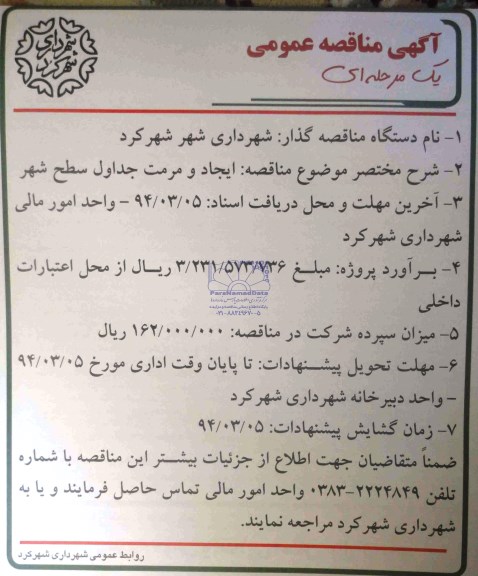 آگهی مناقصه عمومی
یک مرحله‌ای
شهرداری شهرکرد
۱- نام دستگاه مناقصه گذار: شهرداری شهر شهرکرد
۲- شرح مختصر موضوع مناقصه: ایجاد و مرمت جداول سطح شهر
۳- آخرین مهلت و محل دریافت اسناد: ۹۴/۰۳/۰۵ - واحد امور مالی
شهرداری شهرکرد
۴- برآورد پروژه: مبلغ ۳/۲۳۱/۵۷۳/۷۳۶ ریال از محل اعتبارات
داخلی
ParsNamadData
۰۲۱-۸۸۳۴۹۶۷۰-۵
۵- میزان سپرده شرکت در مناقصه: ۱۶۲/۰۰۰/۰۰۰ ریال
۶- مهلت تحویل پیشنهادات: تا پایان وقت اداری مورخ ۹۴/۰۳/۰۵
- واحد دبیرخانه شهرداری شهرکرد
۷- زمان گشایش پیشنهادات: ۹۴/۰۳/۰۵
ضمناً متقاضیان جهت اطلاع از جزئیات بیشتر این مناقصه با شماره
تلفن ۲۲۲۴۸۴۹-۰۳۸۳ واحد امور مالی تماس حاصل فرمایند و یا به
شهرداری شهرکرد مراجعه نمایند.
روابط عمومی شهرداری شهرکرد